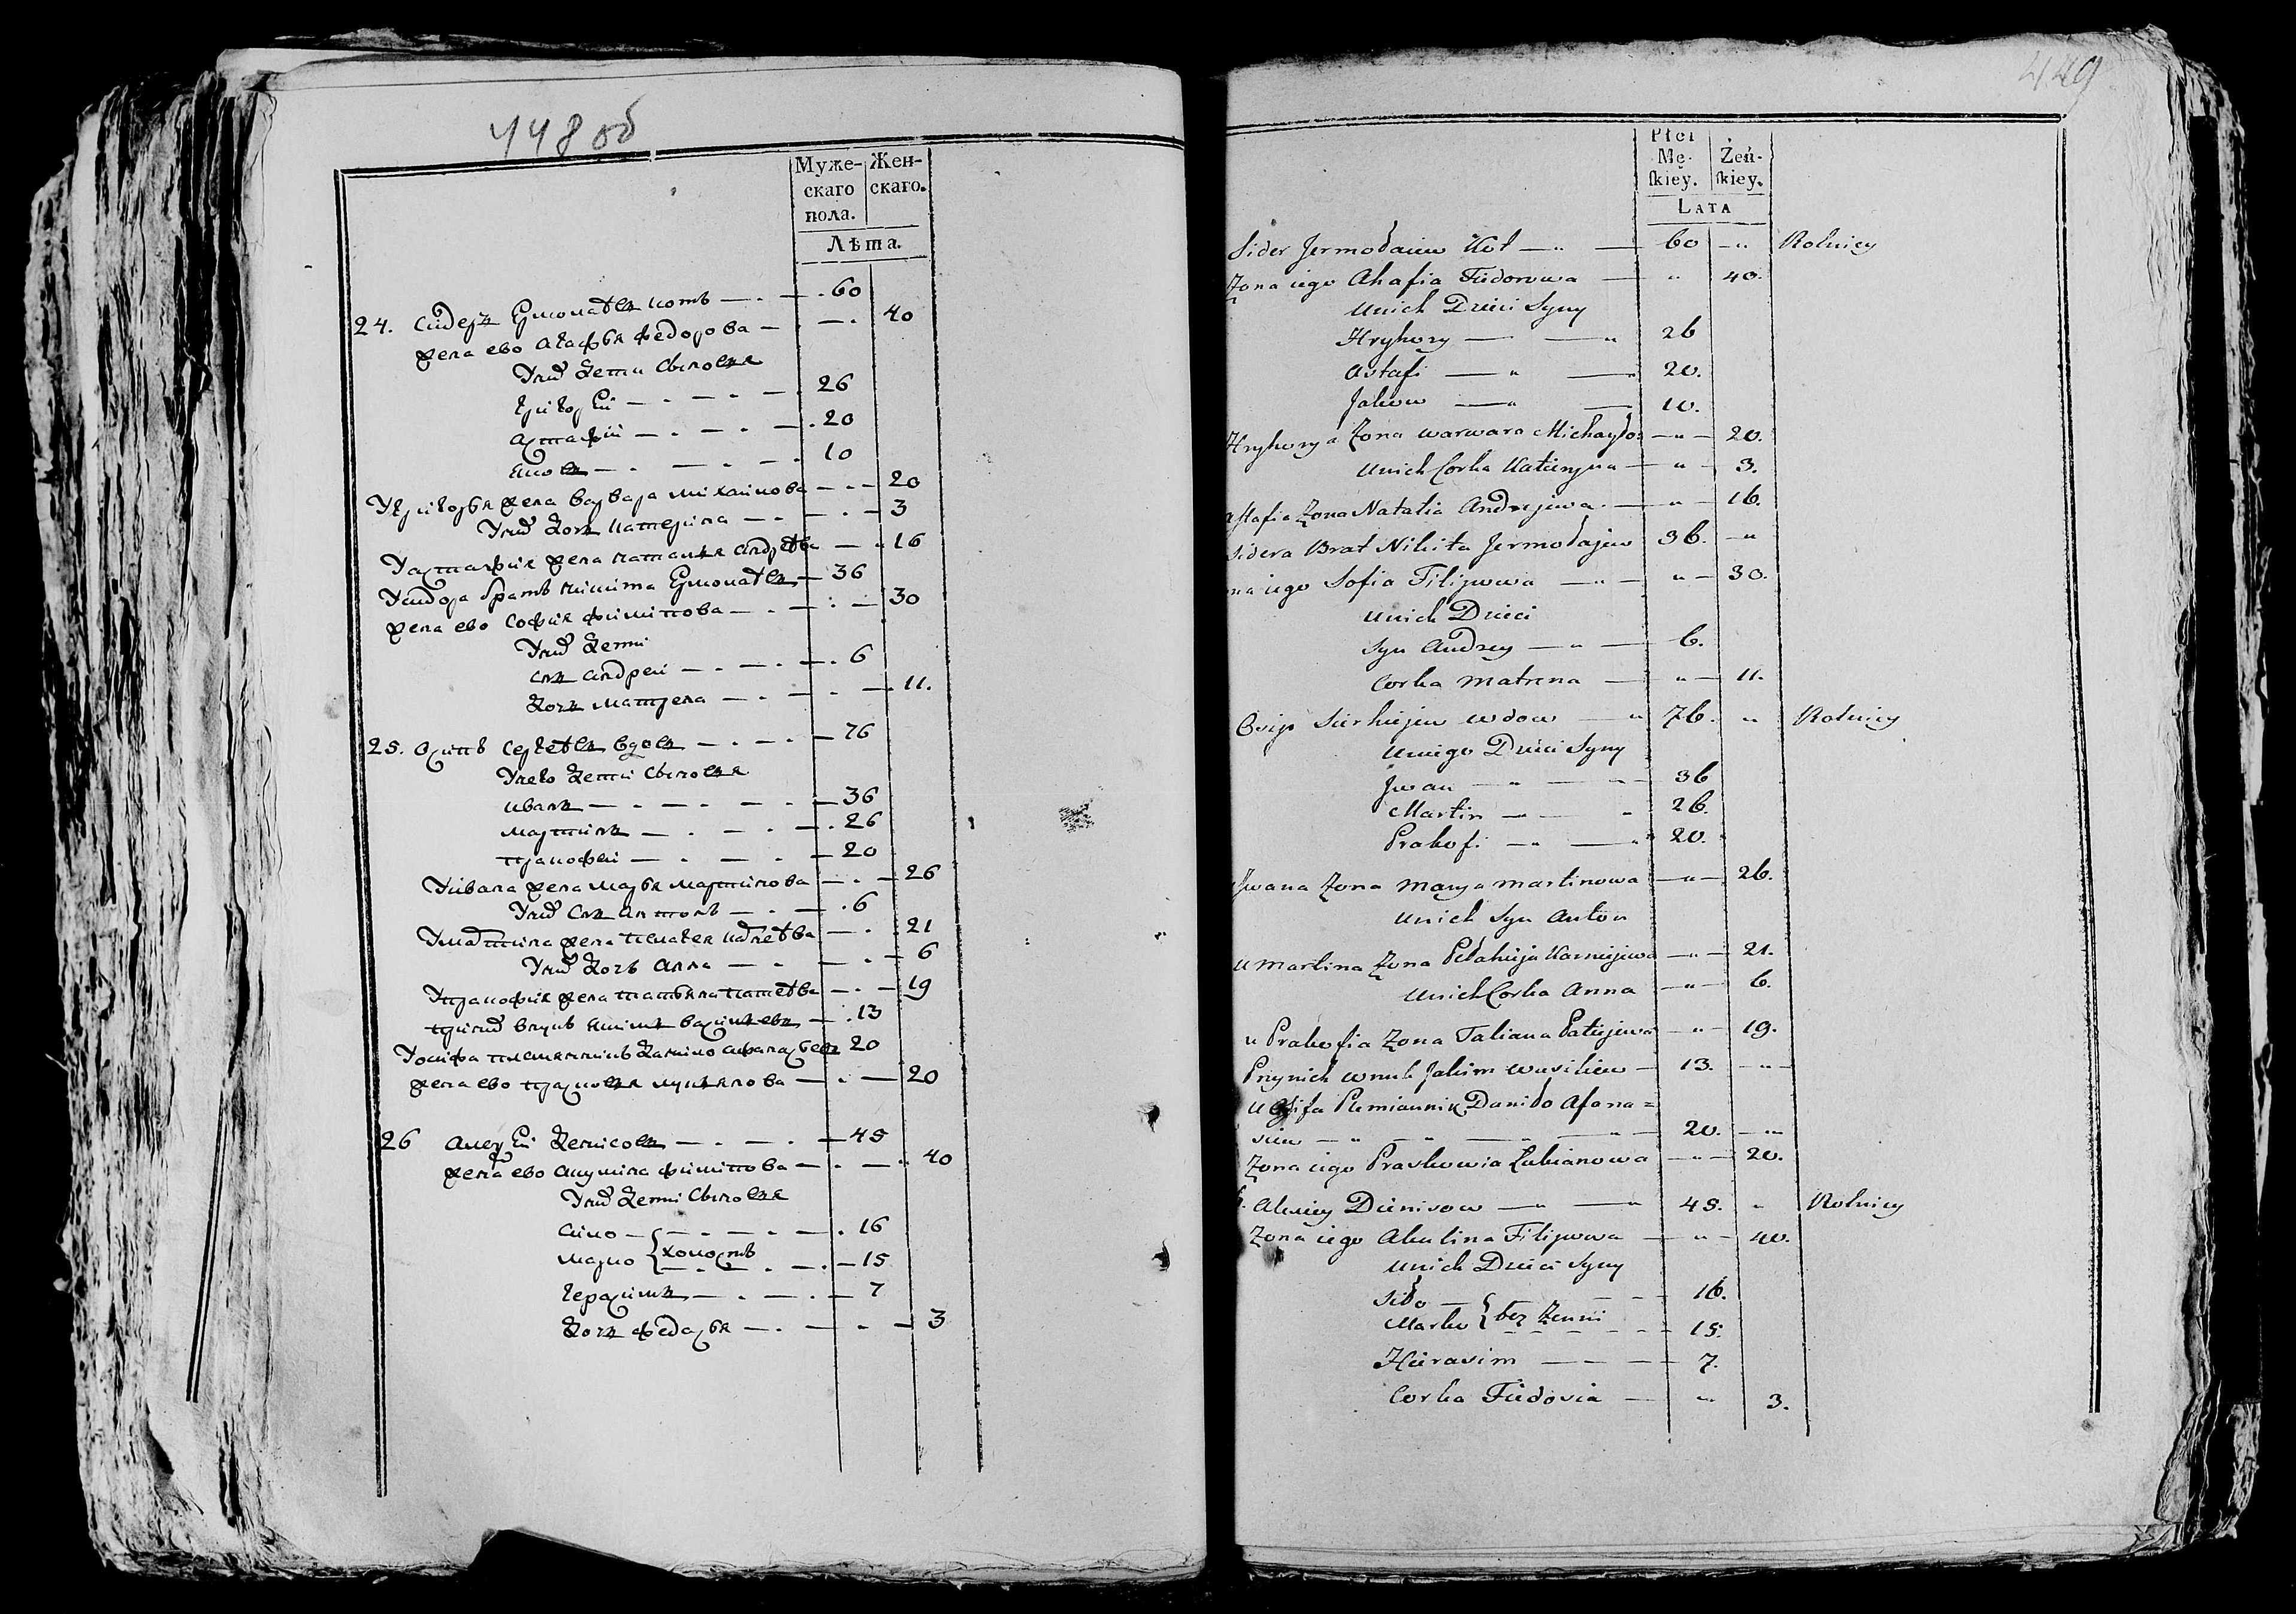 448 об
Муже- Жен-
скаго скаго.
пола.
Лѣта.
24. Сидеръ Ермолаевъ котъ — 60
жена ево Агафья федорова — 40
У них дети Сыновья
Григорей — 26
Астафий — 20
Яковъ — 10
У Григорья жена варвара михайлова — 20
У них дочь катерина — 3
У астафия жена наталья андреева — 16
У сидора братъ никита Ермолаевъ — 36
жена ево софия филипова — 30
У них дети
Сынъ андрей — 6
Дочь матрена — 11.
25. Осипъ Сергеевъ вдовъ — 76
У него дети Сыновья
иванъ — 36
мартинъ — 26
пракофей — 20
У ивана жена марья мартинова — 26
У них Сынъ антонъ — 6
У мартина жена пелагея карнеева — 21
У них дочь анна — 6
У пракофия жена татьяна патеева — 19
при них внукъ якимъ васильевъ — 13
У осифа племянникъ данило афанасьевъ 20
жена ево прасковья лукьянова — 20
26 алексей денисовъ — 45
жена ево акулина филипова — 40
У них дети Сыновья
Сило — 16
марко — холосты — 15
герасимъ — 7
дочь федосья — 3
449
Płci
Mę- Żeń-
skiey. skiey.
LATA
Sider Jermołaiew Kot — 60 — Rolnicy
Zona iego Ahafia Fiedorowa — " 40.
unich Dzieci Syny
Hryhory — 26
Astafi — 20.
Jakow — 10.
Hryhorya Zona warwara Michayło: — 20.
unich Corka Katieryna — " 3.
astafia Zona Natalia Andrejewa — " 16.
Sidera Brat Nikita Jermołajew 36. — "
na iego Sofia Filipowa — " — 30.
unich Dzieci
Syn Andrey — " — 6.
Corka Matrena — " — 11.
Osip Sierhiejew wdow — 76. " Rolnicy
uniego Dzieci Syny
Jwan — 36
Martin — 26.
Prakofi — 20.
Jwana Zona Marya Martinowa — " — 26.
unich Syn Anton
u Martina Zona Pełahieja Karniejewa — " — 21.
unich Corka Anna — " — 6.
u Prakofia Zona Tatiana Patiejewa — " — 19.
Przynich wnuk Jakim Wasiliew — 13. — " —
u Osifa Plemiannik Daniło Afana=
siew — " — 20. — "
Zona iego Praskowia Łukianowa — " — 20.
6. Alexiey Dienisow — " — 45. " Rolnicy
Zona iego Akulina Filipowa — " — 40.
unich Dzieci Syny
Siło — 16.
Marko { bez Zenni — 15.
Hierasim — 7.
Corka Fiedosia — " 3.